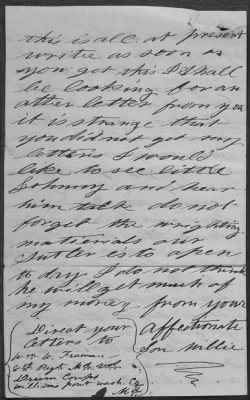 this is all at present
write as soon as
you get this I shall
be looking for an
other letter from you
it is strange that
you did not get my
letters I would
like to see little
Johnny and hear
him talk do not
forget the wrighting
materials our
Sutler is to open
to day I do not think
he will get much of
my money from your
Affectionate
Son Willie
Direct your
letters to
Wm W. Freeman
Regt
Drum Corps
Williams port wash. Co